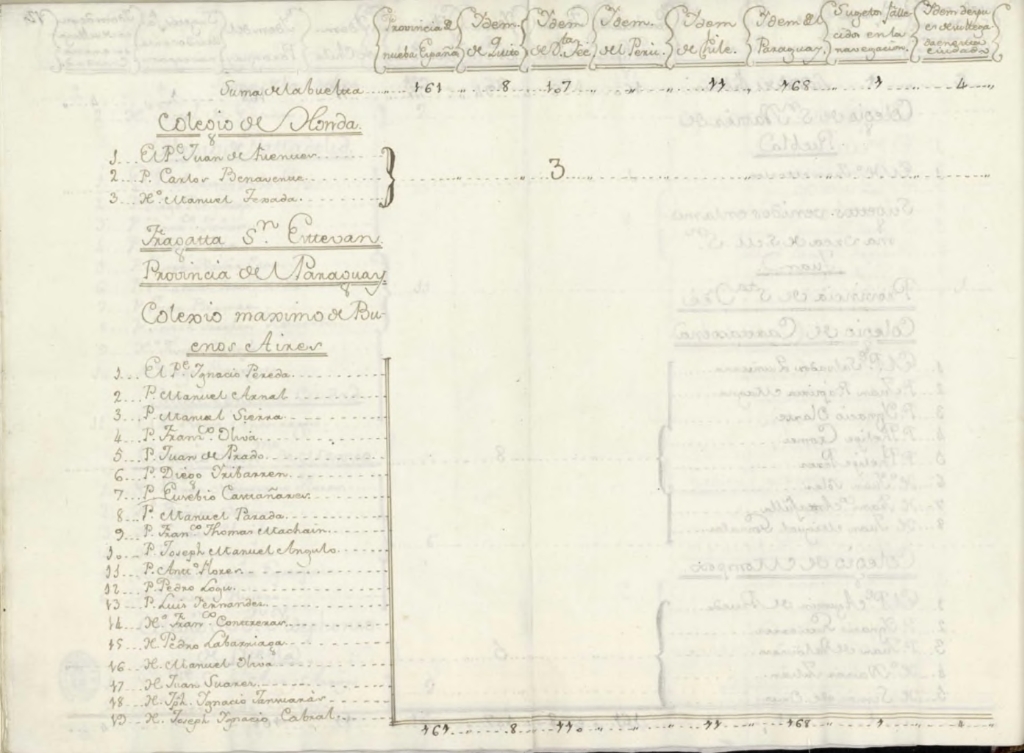 Provincia de nueba España
Idem. de Quito
Idem de Sta. Fee
Idem. del Peru.
Idem de Chile.
Idem del Paraguay,
Sugetos falle cidos en la navegacion.
Idem
Suma de la buelta ..... 161 .. 8 .. 107 .. 11 .. 168 .. 1 .. 4 ..
Colegio de Honda.
1... El Pe. Juan de
2... P. Carlos Benavente
3... Ho. Manuel Texada.
3
Fragatta Sn. Esttevan.
Provincia del Paraguay
Colexio maximo de Bu-
enos Aires
1... El Pe. Ignacio Pereda
2... P. Manuel Arnal
3... P. Manuel Sierra
4... P. Franco. Oliva
5... P. Juan de Prado
6... P. Diego Iribarren
7... P. Eusebio Castañares
8... P. Manuel Parada
9... P. Franco. Thomas Machain
10... P. Joseph Manuel Angulo
11... P. Antto. Flores
12... P. Pedro
13... P. Luis Fernandez
14... Ho. Franco. Contreras
15... H. Pedro Labarriaga
16... H. Manuel Oliva
17... H. Juan Suares
18... H. Jph. Ignacio
19... H. Joseph Ignacio Cabral
161 .. 8 .. 110 .. 11 .. 168 .. 1 ..